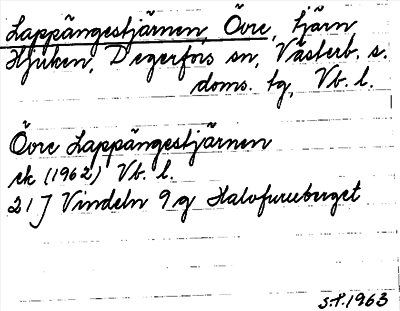 Lappängestjärnen, Övre, tjärn
Hjuken, Degerfors sn, Västerb. s.
doms. tg, Vb. l.
Övre Lappängestjärnen
ek (1962) Vb. l.
21 J Vindeln 9 g Halvfureberget
S.P. 1963